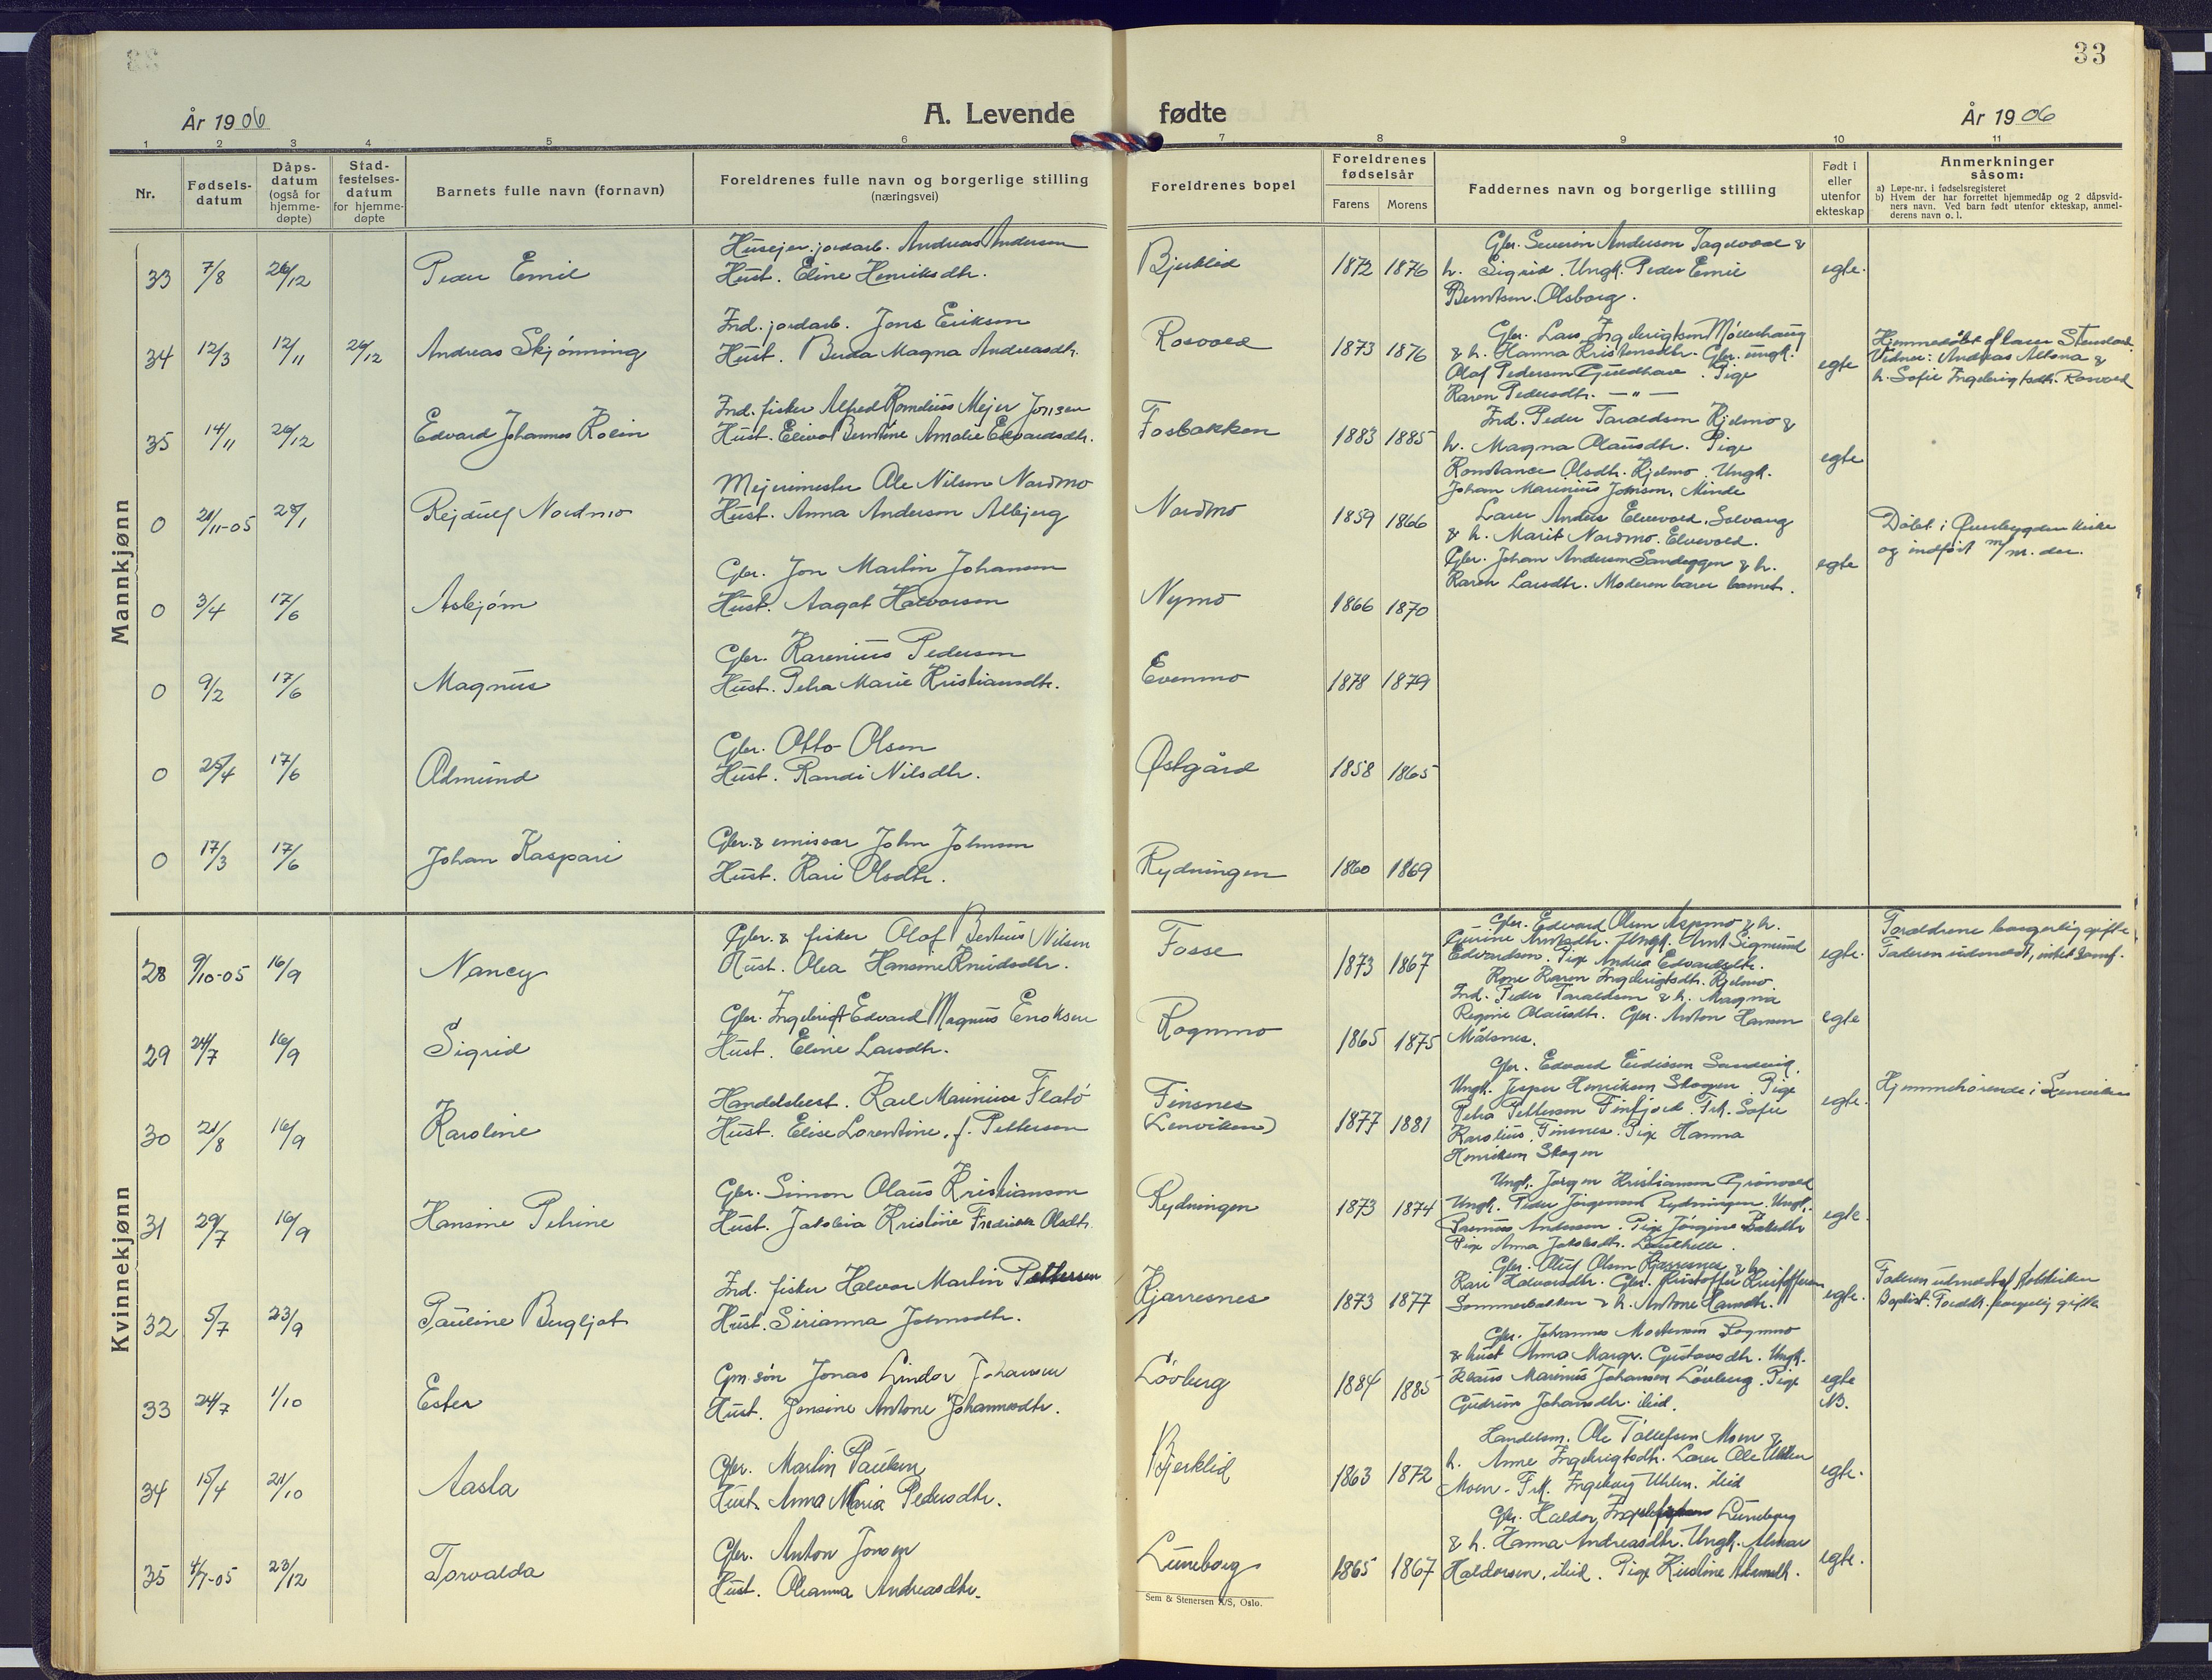 33
År 1906
A. Levende fødte
År 1906
1 2 3 4 5 6 7 8 9 10 11
Nr.
Fødsels-
datum
Dåps-
datum
(også for
hjemme-
døpte)
Stad-
festelses-
datum
for hjemme-
døpte
Barnets fulle navn (fornavn)
Foreldrenes fulle navn og borgerlige stilling
(næringsvei)
Foreldrenes bopel
Foreldrenes
fødselsår
Farens Morens
Faddernes navn og borgerlige stilling
Født i
eller
utenfor
ekteskap
Anmerkninger
såsom:
a) Løpe-nr. i fødselsregisteret
b) Hvem der har forrettet hjemmedåp og 2 dåpsvid-
ners navn. Ved barn født utenfor ekteskap, anmel-
derens navn o. l.
Mannkjønn
33 7/8 26/12 Peder Emil
Husejer. jordarb. Andreas Andersen
Hust. Eline Henriksdtr.
Bjerklid 1872 1876
Gbr. Severin Andersen Tagevold &
h. Sigrid. Ungk. Peder Emil
Berntsen. Olsborg.
egte.
34 12/3 12/11 26/12 Andreas Skjønning
Ind. jordarb. Jens Eriksen
Hust. Berda Magna Andreasdtr.
Rosvold 1873 1876
Gbr. Lars Ingebrigtsen Møllerhaug
& h. Hanna Kristensdtr. Gbr. ungk.
Olaf Pedersen Guldhav. Pige
Karen Pedersdtr. — " —
egte
Hjemmedøbt af lærer
Vidner: Andreas Altona &
h. Sofie Ingebrigtsdtr. Rosvold
35 14/11 26/12 Edvard Johannes Kolin
Ind. fisker Alfred Kornelius Mejer Jensen
Hust. Bentine Amalie Edvardsdtr.
Fosbakken 1883 1885
Ind. Peder Taraldsen Kjelmo &
h. Magna Olausdtr. Pige
Konstance Olsdtr. Kjelmo. Ungk.
Johan Marinius Johnsen. Minde
egte
0 21/11-05 28/1 Rejdulf Nordmo
Mejerimester Ole Nilsen Nordmo
Hust. Anna Andersen Albjerg
Nordmo 1859 1866
Lærer Anders Elvevold. Solvang
& h. Marit Nordmo. Elvevold.
Gbr. Johan Andersen Sandeggen & h.
Karen Larsdtr. Moderen barer barnet.
egte
Døbt i Øverbygden kirke
og indført m/m. der.
0 3/4 17/6 Asbjørn
Gbr. Jon Martin Johansen
Hust. Aagot Halvorsen
Nymo 1866 1870
0 9/2 17/6 Magnus
Gbr. Karenius Pedersen
Hust. Petra Marie Kristiansdtr.
Evenmo 1878 1879
0 25/4 17/6 Odmund
Gbr. Otto Olsen
Hust. Randi Nilsdtr.
Østgård 1858 1865
0 17/3 17/6 Johan Kaspari
Gbr. & emissær John Johnsen
Hust. Kari Olsdtr.
Rydningen 1860 1869
Kvinnekjønn
28 9/10-05 16/9 Nancy
Gbr. & fisker Olaf Berteus Nilsen
Hust. Olea Hansine Knudsdtr.
Fosse 1873 1867
Gbr. Edvard Olsen Aspmo & h.
Arntsdtr. Ungk. Arnt Sigmund
Edvardsen. Pige Andrea Edvardsdtr.
egte.
Forældrene borgerlig gifte
Faderen udmeldt, intet samf.
29 24/7 16/9 Sigrid
Gbr. Ingebrigt Edvard Magnus Enoksen
Hust. Eline Larsdtr.
Rognmo 1865 1875
Kone Karen Ingebrigtsdtr. Kjelmo
Ind. Peder Taraldsen & h. Magna
Regine Olausdtr. Gbr. Anton Hansen
Målsnes.
egte
30 21/8 16/9 Karoline
Handelsbest. Karl Marinius Flatø
Hust. Elise Lorentine, f. Pettersen
Finsnes
(Lenviken) 1877 1881
Gbr. Edvard Eidissen Sandvig.
Ungk. Jesper Henriksen Skogen. Pige
Petra Pettersen Finfjord. Frk. Sofie
Karolius Finsnes. Pige Hanna
Henriksen Skogen
egte.
Hjemmehørende i Lenviken
31 29/7 16/9 Hansine Petrine
Gbr. Simon Olaus Kristiansen
Hust. Jakobia Kristine Fredrikke Olsdtr.
Rydningen 1873 1874
Ungk. Jørgen Kristiansen Grønvold
Ungk. Peder Jørgensen Rydningen. Ungk.
Rasmus Andersen. Pige Jørgine
Pige Anna Jakobsdtr.
egte.
32 5/7 23/9 Pauline Bergljot
Ind. fisker Halvor Martin Pettersen
Hust. Sirianna Johnsdtr.
Kjerresnes 1873 1877
Gbr. Oluf Olsen Kjerresnes & h.
Kari Halvorsdtr. Gbr. Kristoffer Kristoffersen
Sommerbakken & h. Antone Hansdtr.
egte.
Faderen udmeldt af statskirken
Baptist. Forældr. borgerlig gifte
33 24/7 1/10 Ester
Gm.søn Jonas Lindor Johansen
Hust. Jensine Antone Johannesdtr.
Løvberg 1884 1885
Gbr. Johannes Mortensen Rognmo
& hust Anna Margr. Gustavsdtr. Ungk.
Klaus Marinius Johansen Løvberg. Pige
Gudrun Johansdtr. ibid.
egte
NB.
34 15/4 21/10 Aasta
Gbr. Martin Paulsen
Hust. Anna Maria Pedersdtr.
Bjerklid 1863 1872
Handelsm. Ole Tollefsen Moen &
h. Anne Ingebrigtsdtr. Lærer Ole Uhlen
Moen. Frk. Ingeborg Uhlen. ibid
egte.
35 4/7-05 23/12 Torvalda
Gbr. Anton Jensen
Hust. Oleanna Andreasdtr.
Luneborg 1865 1867
Gbr. Haldor Luneborg
& h. Hanna Andreasdtr. Ungk. Almar
Haldorsen, ibid. Pige Kirstine
egte.
Sem & Stenersen A/S, Oslo.